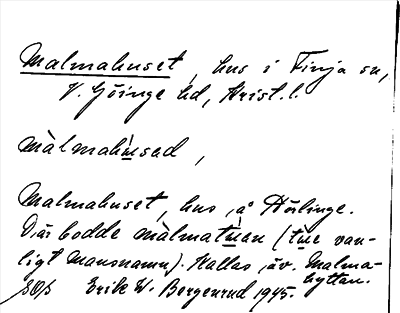 Malmahuset, hus i Finja sn,
V. Göinge hd, Krist. l.
màlmahùsed,
Malmahuset, hus, å Hörlinge.
Där bodde màlmatuen (tue van-
ligt mansnamn). Kallas äv. Malma-
hyttan.
Erik W. Borgenrud 1945.